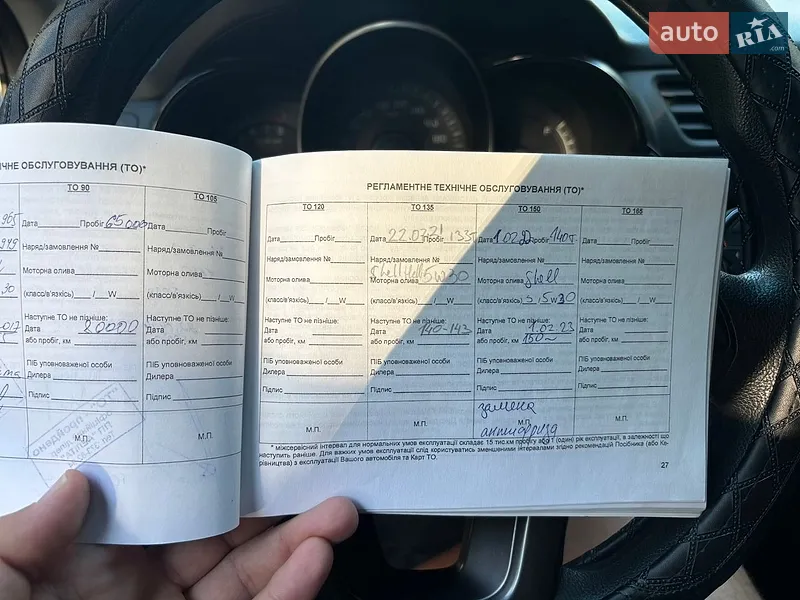 auto RIA
.com
ЧНЕ ОБСЛУГОВУВАННЯ (ТО)*
ТО 90
ТО 105
965 Дата Пробіг 65000 Дата Пробіг
Наряд/замовлення № Наряд/замовлення №
Моторна олива Моторна олива
30 (клас/в'язкість) / W (клас/в'язкість) / W
Наступне ТО не пізніше: Наступне ТО не пізніше:
Дата Дата
або пробіг, км 80000 або пробіг, км
ПІБ уповноваженої особи ПІБ уповноваженої особи
Дилера Дилера
Підпис Підпис
М.П. М.П.
РЕГЛАМЕНТНЕ ТЕХНІЧНЕ ОБСЛУГОВУВАННЯ (ТО)*
ТО 120 ТО 135 ТО 150 ТО 165
Дата Пробіг Дата 22.07.21 Пробіг 133т Дата 1.02.22 Пробіг 140т. Дата Пробіг
Наряд/замовлення № Наряд/замовлення № Наряд/замовлення № Наряд/замовлення №
Моторна олива Моторна олива Shell 5w30 Моторна олива Shell Моторна олива
(клас/в'язкість) / W (клас/в'язкість) / W (клас/в'язкість) 5w30 (клас/в'язкість) / W
Наступне ТО не пізніше: Наступне ТО не пізніше: Наступне ТО не пізніше: Наступне ТО не пізніше:
Дата Дата 140-143 Дата 1.02.23 Дата
або пробіг, км або пробіг, км або пробіг, км 150 або пробіг, км
ПІБ уповноваженої особи ПІБ уповноваженої особи ПІБ уповноваженої особи ПІБ уповноваженої особи
Дилера Дилера Дилера Дилера
Підпис Підпис Підпис Підпис
замена
антифриза
М.П. М.П. М.П. М.П.
* міжсервісний інтервал для нормальних умов експлуатації складає 15 тис.км пробігу або 1 (один) рік експлуатації, в залежності що
наступить раніше. Для важких умов експлуатації слід користуватись зменшеними інтервалами згідно рекомендацій Посібника (або Ке-
рівництва) з експлуатації Вашого автомобіля та Карт ТО.
27